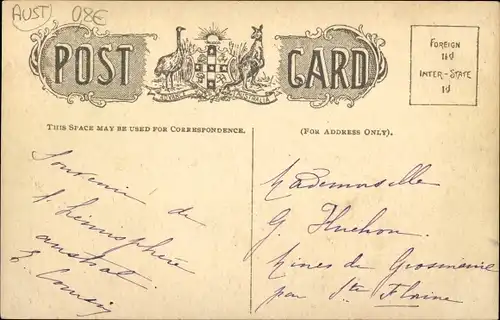 AUST 08€
POST CARD
FOREIGN
1½ᴰ
INTER-STATE
1ᴰ
THIS SPACE MAY BE USED FOR CORRESPONDENCE.
(FOR ADDRESS ONLY).
Souvenir de
l'hémisphère
austral
Mademoiselle
G. Huchon
Mines de
par Ste Florine